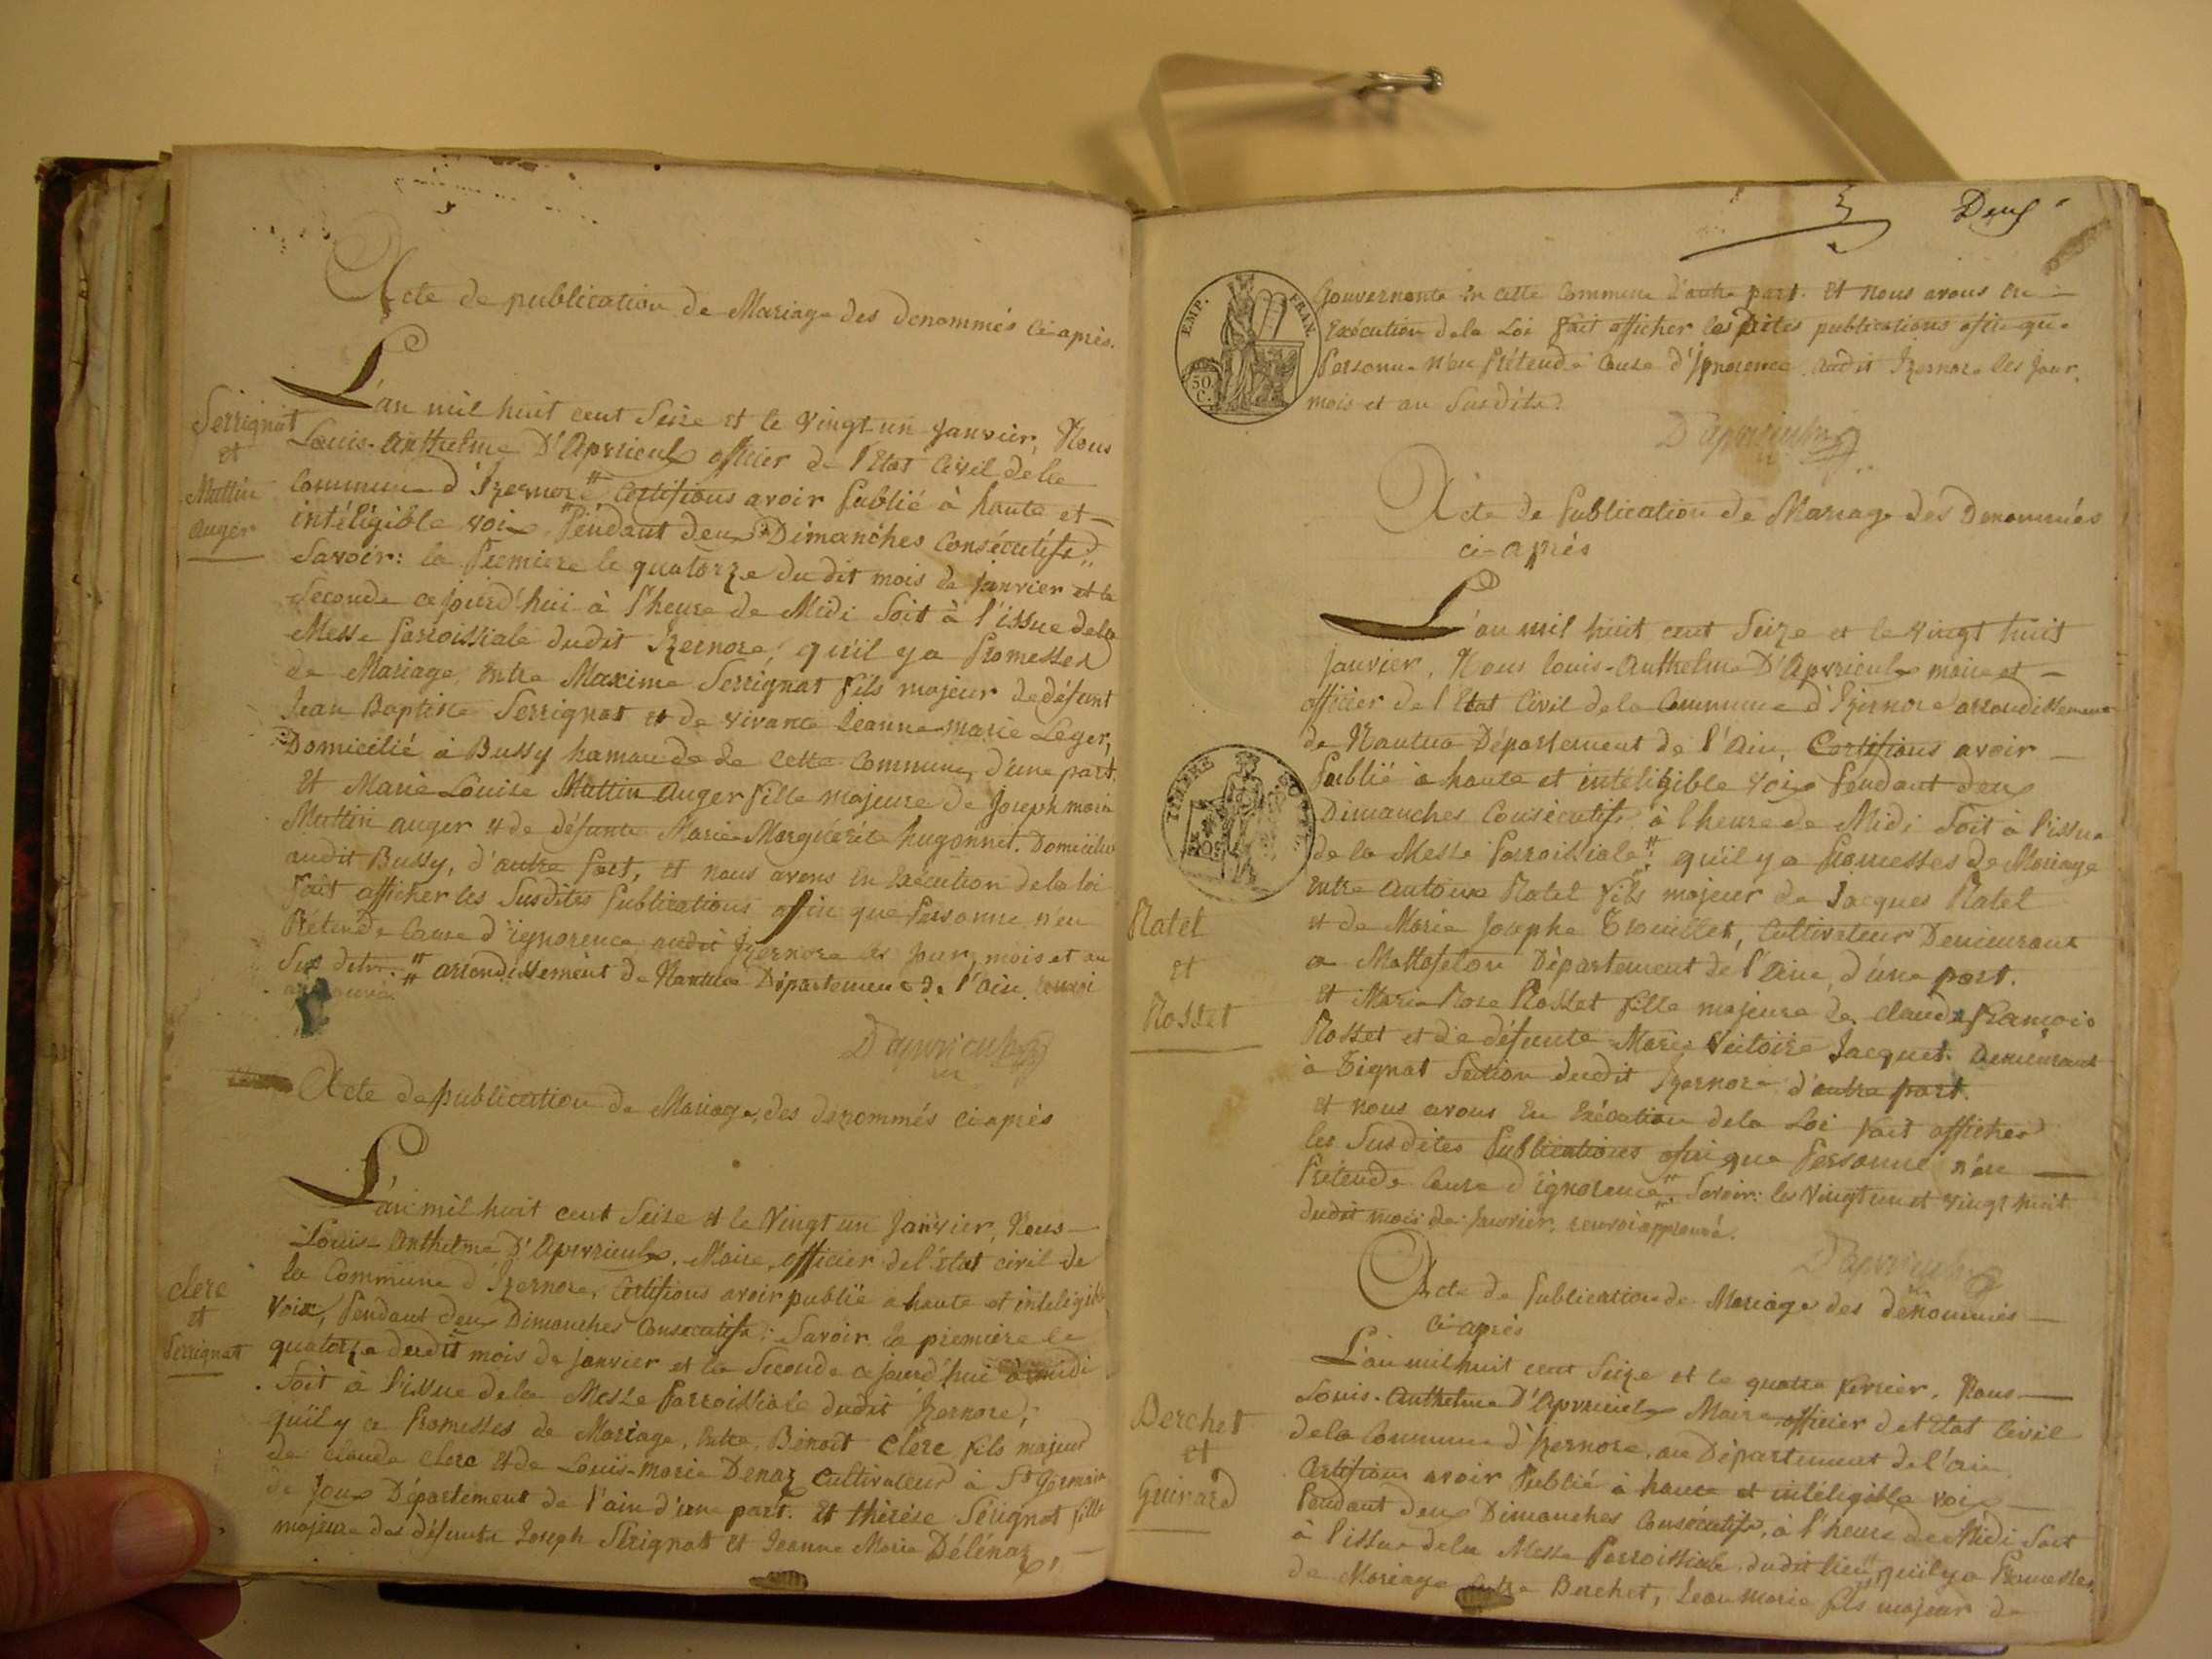 Acte de publication de Mariage des denommés ci-après.
Serrignat
et
Muttin
auger
L'an mil huit cent Seize et le vingt un Janvier, Nous
Louis-Anthelme D'Apvrieulx officier de l'Etat Civil de la
Commune d'Izernore # Certifions avoir Publié à haute et
intéligible voix, Pendant deux Dimanches Consécutifs;
Savoir: la Premiere le quatorze du dit mois de Janvier et la
Seconde ce jourd'hui à l'heure de Midi Soit à l'issue de la
Messe Parroissiale dudit Izernore; qu'il y a Promesses
de Mariage, entre Maxime Serrignat fils majeur de défunt
Jean Baptiste Serrignat et de vivante Jeanne-marie Leger,
Domicilié à Bussy hamau de de cette Commune, d'une part.
Et Marie Louise Muttin Auger fille majeure de Joseph marie
Muttin auger et de défunte Marie Marguerite hugonnet. Domiciliée
audit Bussy, d'autre Part, et nous avons en Exécution de la loi
fait afficher les Susdites Publications afin que Personne n'en
Prétende Cause d'ignorence audit Izernore les Jour, mois et an
Sus dits. # arrondissement de Nantua Département de l'ain, renvoi
D'apvrieulx
Acte de publication de Mariage, des denommés ci après
clerc
et
Serrignat
L'an mil huit cent Seize et le Vingt un Janvier, Nous
Louis-Anthelme D'Apvrieulx, Maire, officier de l'état civil de
la Commune d'Izernore, Certifions avoir publié a haute et inteligible
voix, Pendant deux Dimanches Consecutifs: Savoir la premiere le
quatorze dudit mois de Janvier et la Seconde ce jourd'hui à midi
Soit à l'issue de la Messe Parroissiale dudit Izernore;
qu'il y a Promesses de Mariage, entre Benoit Clerc fils majeur
de claude clerc et de Louis-marie Denaz Cultivateur à St Germain
de Joux Département de l'ain d'une part. Et thérèse Sérignat fille
majeure des défunts Joseph Sérignat et Jeanne Marie Délénaz,
Deux
EMP. FRAN.
50 C.
Gouvernante en cette Commune d'autre part. Et nous avons en
Exécution de la Loi fait afficher les dites publications afin que
Personne n'en Prétende Cause d'Ignorence audit Izernore les Jour,
mois et an Susdits.
D'apvrieulx
Acte de Publication de Mariage des Denommés
ci-après
TIMBRE
Ratel
et
Rosset
L'an mil huit cent Seize et le vingt huit
Janvier, Nous louis-Anthelme D'Apvrieulx maire et
officier de l'Etat Civil de la Commune d'Izernore arrondissement
de Nantua Département de l'Ain, Certifions avoir
Publié à haute et intéligible voix Pendant deux
Dimanches Consécutifs à l'heure de Midi Soit à l'issue
de la Messe Parroissiale # qu'il y a Promesses de Mariage
entre antoine Ratel fils majeur de Jacques Ratel
et de Marie Josephe Trouillet, Cultivateur Demeurant
a Mattafelon Département de l'Ain, d'une part.
Et Marie Rose Rosset fille majeure de claude françois
Rosset et de défunte Marie Victoire Jacquet. Demeurant
à Tignat Section dudit Izernore d'autre part.
et nous avons en Exécution de la Loi fait afficher
les Susdites Publications afin que Personne n'en
Prétende Cause d'ignorence. # Savoir: les vingt un et vingt huit
dudit mois de Janvier, renvoi approuvé.
D'apvrieulx
Acte de Publication de Mariage des dénommés
ci-après
Berchet
et
Guirard
L'an mil huit cent Seize et le quatre fevrier, Nous
Louis-Anthelme D'Apvrieulx Maire officier de l'Etat Civil
de la Commune d'Izernore, au Département de l'ain,
Certifions avoir Publié à haute et intéligible voix
Pendant deux Dimanches Consécutifs, à l'heure de Midi Soit
à l'issue de la Messe Parroissiale dudit lieu, # qu'il y a Promesses
de Mariage Entre Berchet, Jean marie fils majeur de